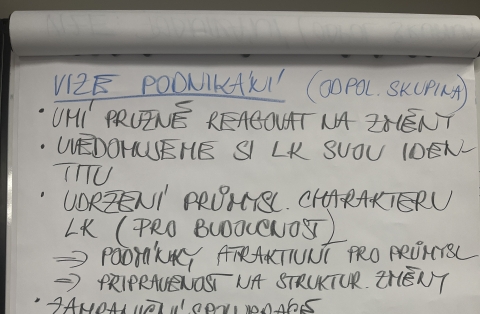 VIZE PODNIKÁNÍ (ODPOL. SKUPINA)
• UMÍ PRUŽNĚ REAGOVAT NA ZMĚNY
• UVĚDOMUJEME SI LK SVOU IDEN-
TITU
• UDRŽENÍ PRŮMYSL. CHARAKTERU
LK (PRO BUDOUCNOST)
⇒ PODMÍNKY ATRAKTIVNÍ PRO PRŮMYSL
⇒ PŘIPRAVENOST NA STRUKTUR. ZMĚNY
• ZAHRANIČNÍ SPOLUPRÁCE